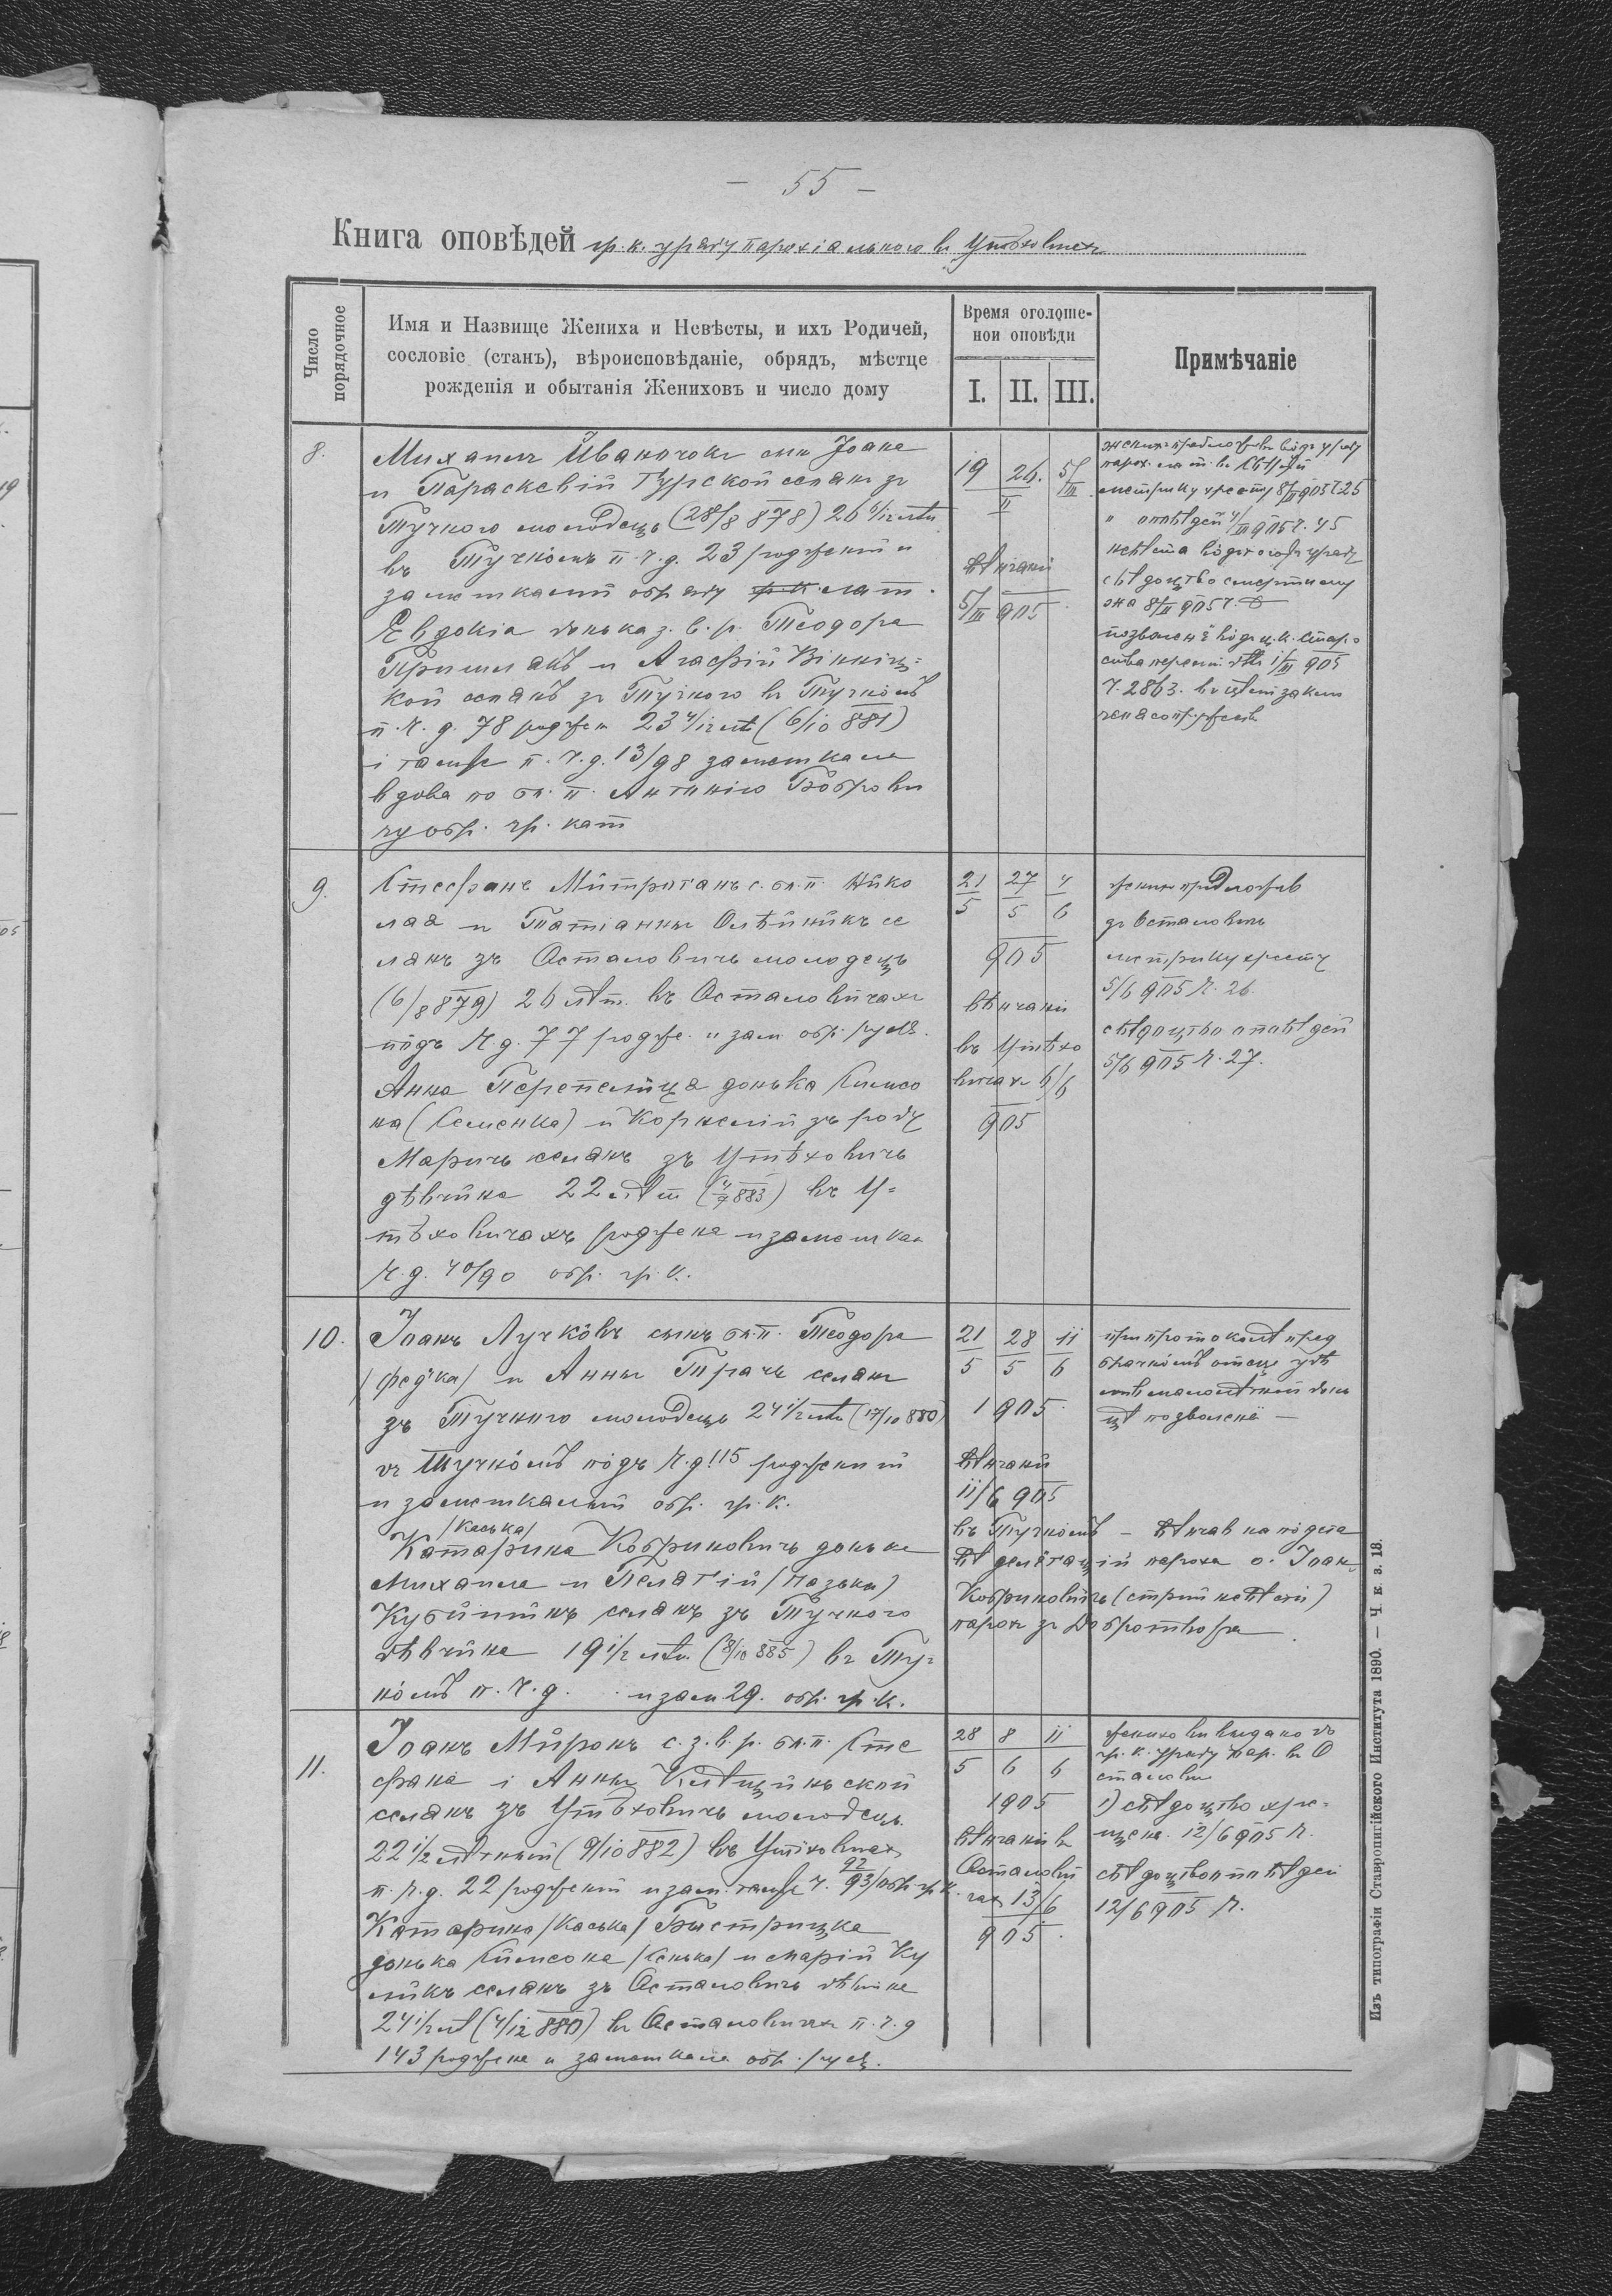 — 55 —
Книга оповѣдей гр. к. уряду парохіального въ Утѣховичах
Число порядочное
Имя и Назвище Жениха и Невѣсты, и ихъ Родичей,
сословіе (станъ), вѣроисповѣданіе, обрядъ, мѣстце
рожденія и обытанія Жениховъ и число дому
Время оголоше-
нои оповѣди
I. II. III.
Примѣчаніе
8.
Михаилъ Ивано сын Іоана
и Параскевій Гурской селянъ зъ
Тучного молодець (28/8 878) 26 6/12 лѣтн
въ Тучнôмъ п. ч. д. 23 роджений и
замешкалий обряду лат.
Евдокіа донька з. в. р. Теодора
и Агафій Вінніц=
кой селянъ зъ Тучного въ Тучнôмъ
п. ч. д. 78 роджен 23 4/12 лѣт (6/10 881)
і тамже п. ч. д. 13/98 замешкала
вдова по бл. п. Антонію Боброви
чу обр. гр. кат
19 26. 5/III
II
вѣнчаній
5/III 905
женихъ предложивъ вôдъ уряду
парох. лат. въ
метрику хресту 8/II 905 ч. 25
" оповѣдей 4/III 905 ч. 45
невѣста вôдъ тогожъ уряду
свѣдоцтво смерти мужа
8/II 905 ч.
позволенє вôдъ ц. к. Старо
ства 1/III 905
ч. 2863.
9.
Стефанъ Митроганъ с. бл. п. Нико
лая и Татіанны Олѣйникъ се
лянъ зъ Осталовичъ молодець
(6/8 879) 26 лѣт. въ Осталовичахъ
пôдъ ч. д. 77 родже. и зам обр. руск.
Анна Перепелица донька Симео
на (Семенка) и Корнелій зъ роду
Маричъ селянъ зъ Утѣховичъ
дѣвчина 22 лѣт (4/9 883) въ У=
тѣховичахъ роджена и замешкан
ч. д. 40/90 обр. гр. к.
21/5 27/5 4/6
905
вѣнчаній
въ Утѣхо
вичахъ 6/6
905
женихъ предложив
зъ Осталовичъ
метрику хресту
5/6 905 ч. 26.
свѣдоцтво оповѣдей
5/6 905 ч. 27.
10.
Іоанъ Лучкôвъ сынъ бл. п. Теодора
/Федька/ и Анны Трачъ селянъ
зъ Тучного молодець 24 1/2 лѣтн (17/10 880)
въ Тучнôмъ пôдъ ч. д. 115 роджений
и замешкалый обр. гр. к.
/Каська/
Катарина Кобриновичъ донька
Михаила и Пелагій /Пазьки/
селянъ зъ Тучного
дѣвчина 19 1/2 лѣтн (8/10 885) въ Туч=
нôмъ п. ч. д. и зам 29. обр. гр. к.
21/5 28/5 11/6
1905
вѣнчаній
11/6 905
въ Тучнôмъ — вѣнчав на пôдста
вѣ делєгаціи пароха о. Іоан
Кобриновичъ (стрий невѣсти)
парохъ зъ Добротвора
при протоколѣ пред
брачнôмъ отець удѣ
ливъ малолѣтной донь
цѣ позволенє —
11.
Іоанъ Миронъ с. з. в. р. бл. п. Сте
фана і Анны
селянъ зъ Утѣховичъ молодець.
22 1/2 лѣтный (9/10 882) въ Утѣховичах
п. ч. д. 22 роджений и зам. тамже ч. 92/93/обр. гр. к.
Катарина /Каська/ Быстрицка
донька Симеона /Сенька/ и Марій Ку
ликъ селянъ зъ Осталовичъ дѣвчина
24 1/2 лѣт (4/12 880) въ Осталовичах п. ч. д
143 роджена и замешкала обр. руск.
28/5 8/6 11/6
1905
вѣнчаній в
Осталови
чах 13/6
905.
женихови выдано до
гр. к. уряду пар. въ О
сталович
1) свѣдоцтво хре=
щеня. 12/6 905 ч.
свѣдоцтво оповѣдей
12/6 905 ч.
Изъ типографіи Ставропигійского Института 1890. — Ч. к. з. 18.